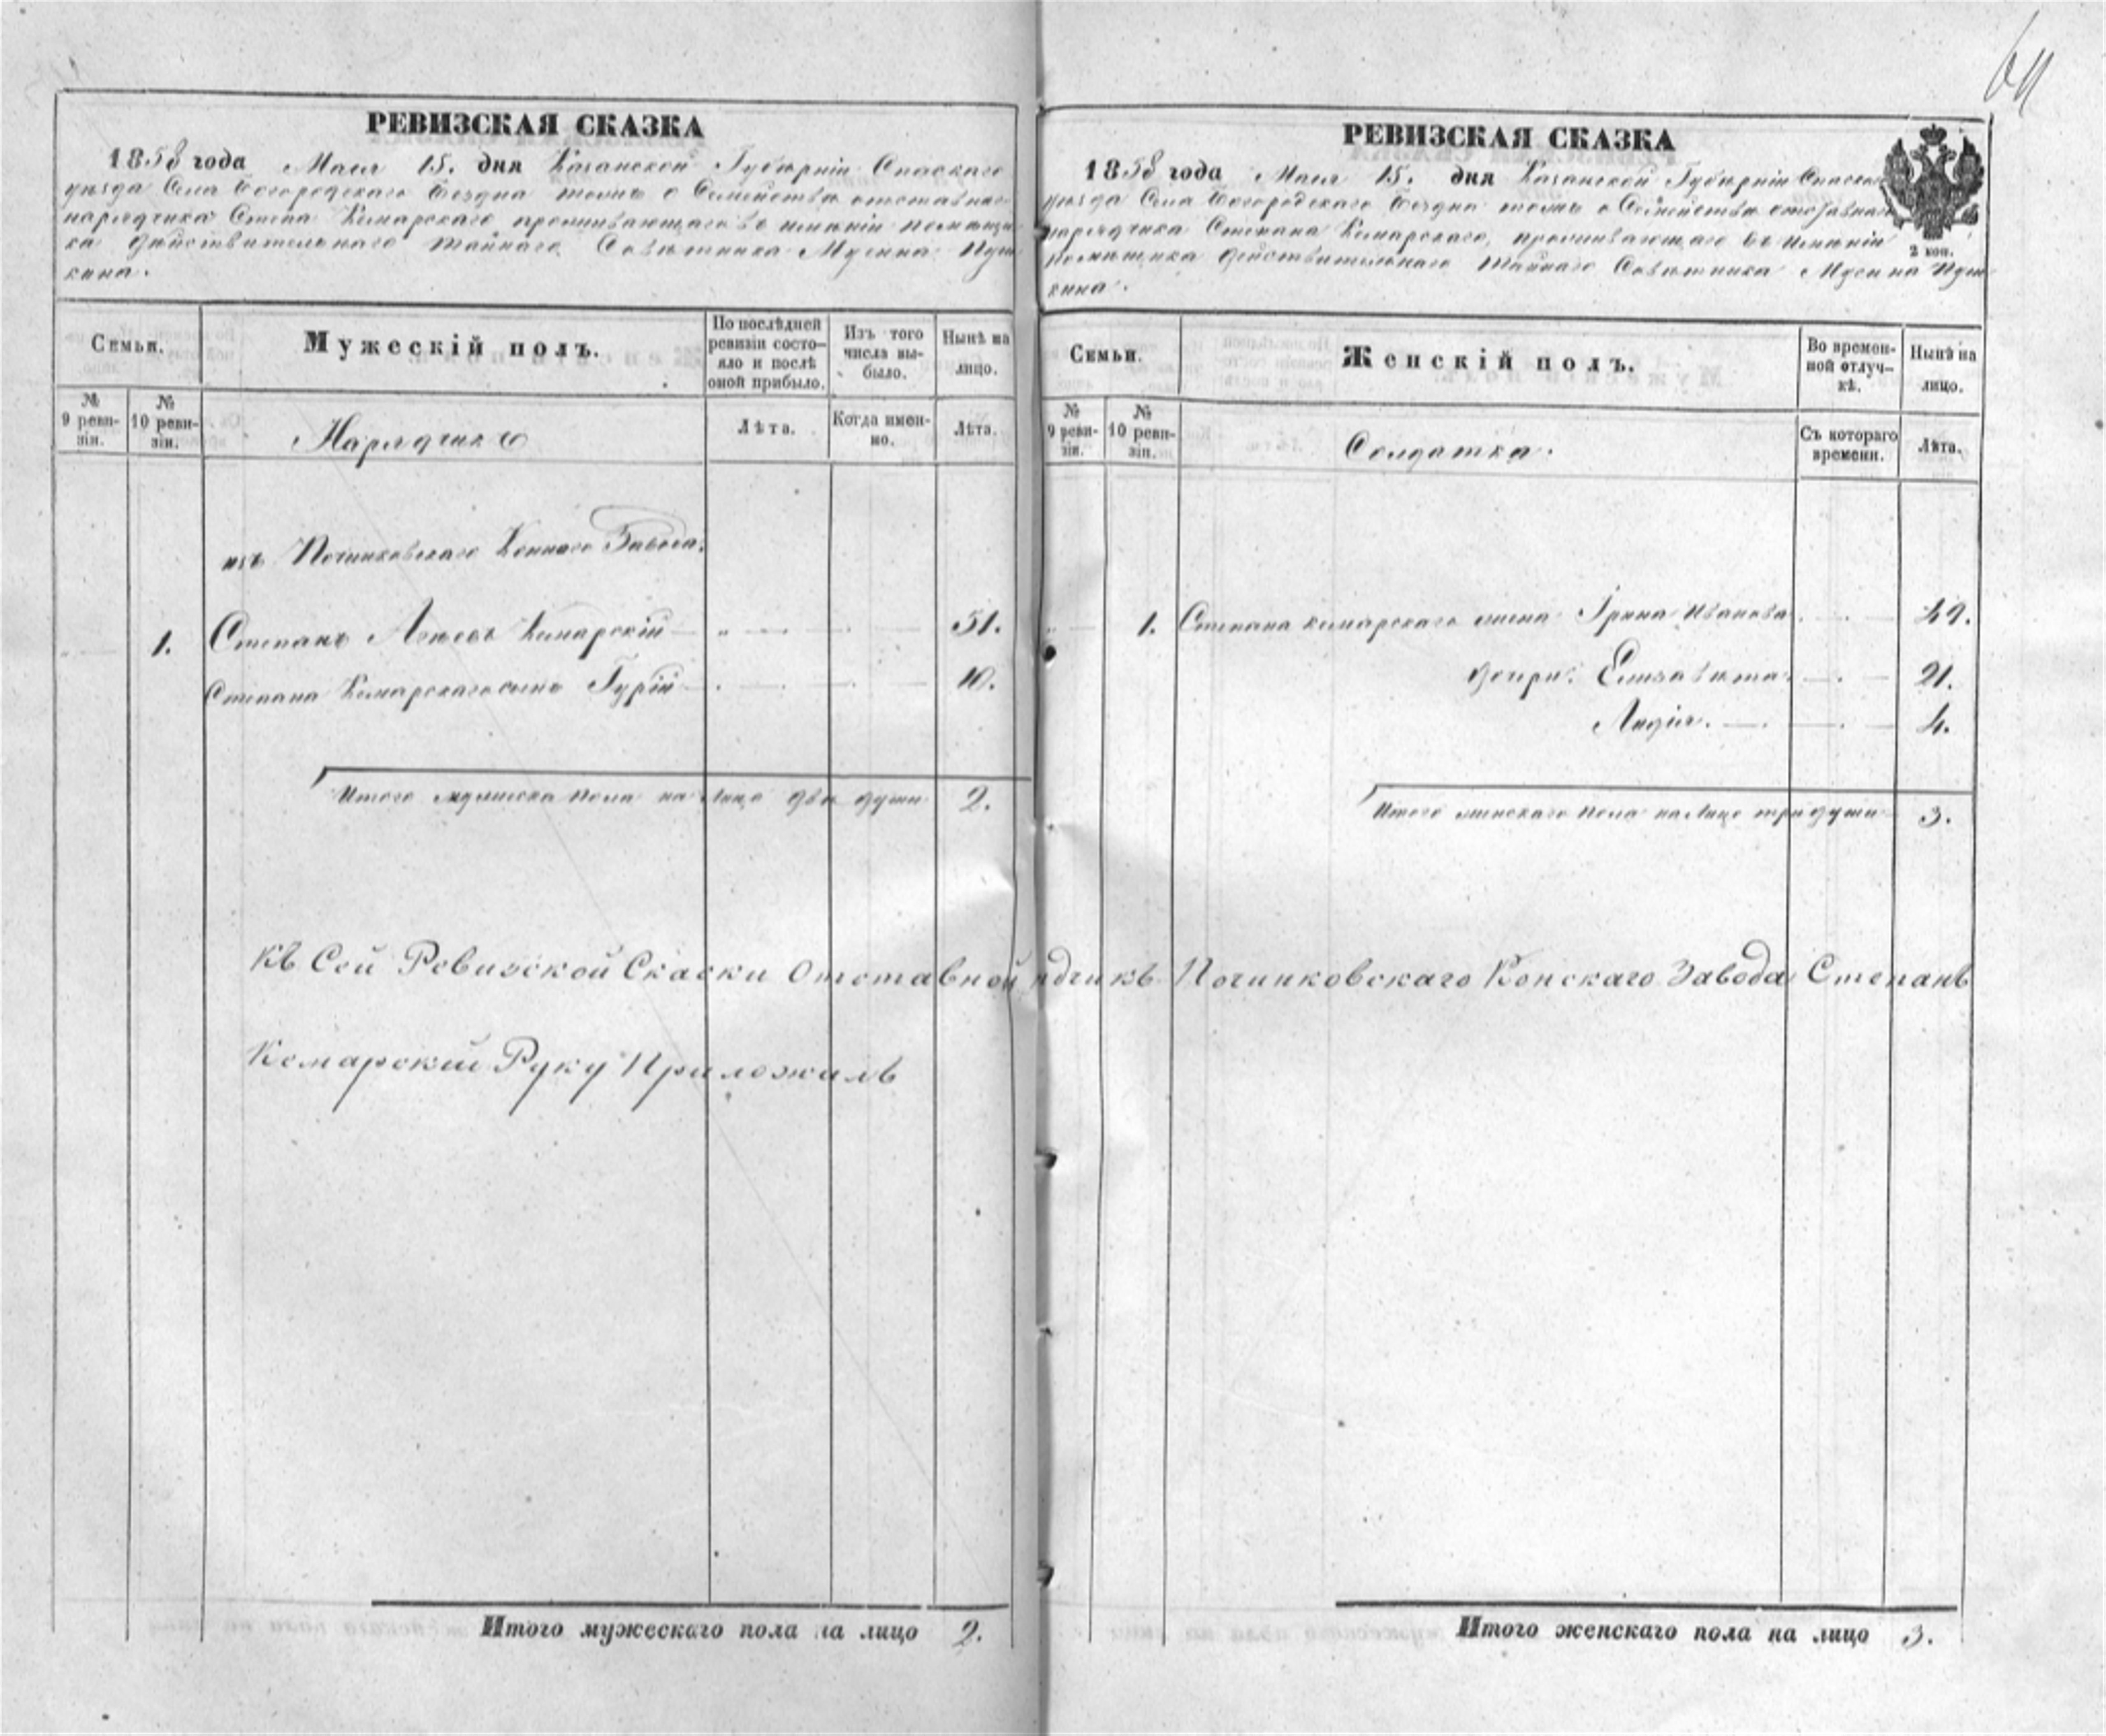 РЕВИЗСКАЯ СКАЗКА
1858 года Маия 15. дня Казанской Губерніи Спаскаго
уѣзда Села Богородскаго Бездна тожъ о Семействѣ отставнаго
нарядчика Степа Комарскаго проживающаго въ имѣніи помѣщи
ка дѣйствительнаго тайнаго Совѣтника Мусина Пуш
кина.
Семьи.
Мужескій полъ.
По послѣдней ревизіи состояло и послѣ оной прибыло.
Изъ того числа выбыло.
Нынѣ на лицо.
№ 9 ревизіи.
№ 10 ревизіи.
Нарядчикъ
Лѣта.
Когда именно.
Лѣта.
изъ Починковскаго Коннаго Завода.
1. Степанъ Комарскій 51.
Степана Комарскаго сынъ Гурій 10.
Итого мужеска пола на лицо две души 2.
Къ Сей Ревизской Сказки Отставной
Комарский Руку Приложилъ
Итого мужескаго пола на лицо 2.
РЕВИЗСКАЯ СКАЗКА
1858 года Маия 15. дня Казанской Губерніи Спаска
уѣзда Села Богородскаго Бездна тожъ о Семействѣ отставнаго
нарядчика Степана Комарскаго, проживающаго въ имѣніи
помѣщика дѣйствительнаго тайнаго Совѣтника Мусина Пуш
кина.
2 коп.
Семьи.
Женскій полъ.
Во временной отлучкѣ.
Нынѣ на лицо.
№ 9 ревизіи.
№ 10 ревизіи.
Солдатка.
Съ котораго времени.
Лѣта.
1. Степана комарскаго жена Ірина Иванова 49.
дочери: Елизавета 21.
Лидія. 4.
Итого женскаго пола на лицо три души 3.
Починковскаго Конскаго Завода Степанъ
Итого женскаго пола на лицо 3.